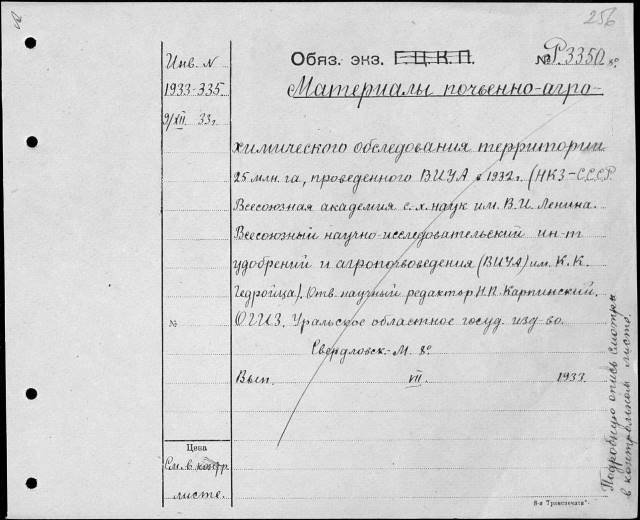 256
Инв. N
1933-335
9/XII 33 г.
Обяз. экз. Г.Ц.К.П.
№ Р.3350 8°
Материалы почвенно-агро-
химического обследования территории
25 млн. га, проведенного ВИУА в 1932 г. (НКЗ-СССР
Всесоюзная академия с.-х. наук им. В.И. Ленина.
Всесоюзный научно-исследовательский ин-т
удобрений и агропочвоведения (ВИУА) им. К.К.
Гедройца). Отв. научный редактор Н.П. Карпинский.
№
ОГИЗ. Уральское областное госуд. изд-во.
Свердловск-М. 8°
Вып. VII. 1933.
Цена
См. в контр.
листе.
Подробную опись смотри
в контрольном листе.
8-я Транспечать".